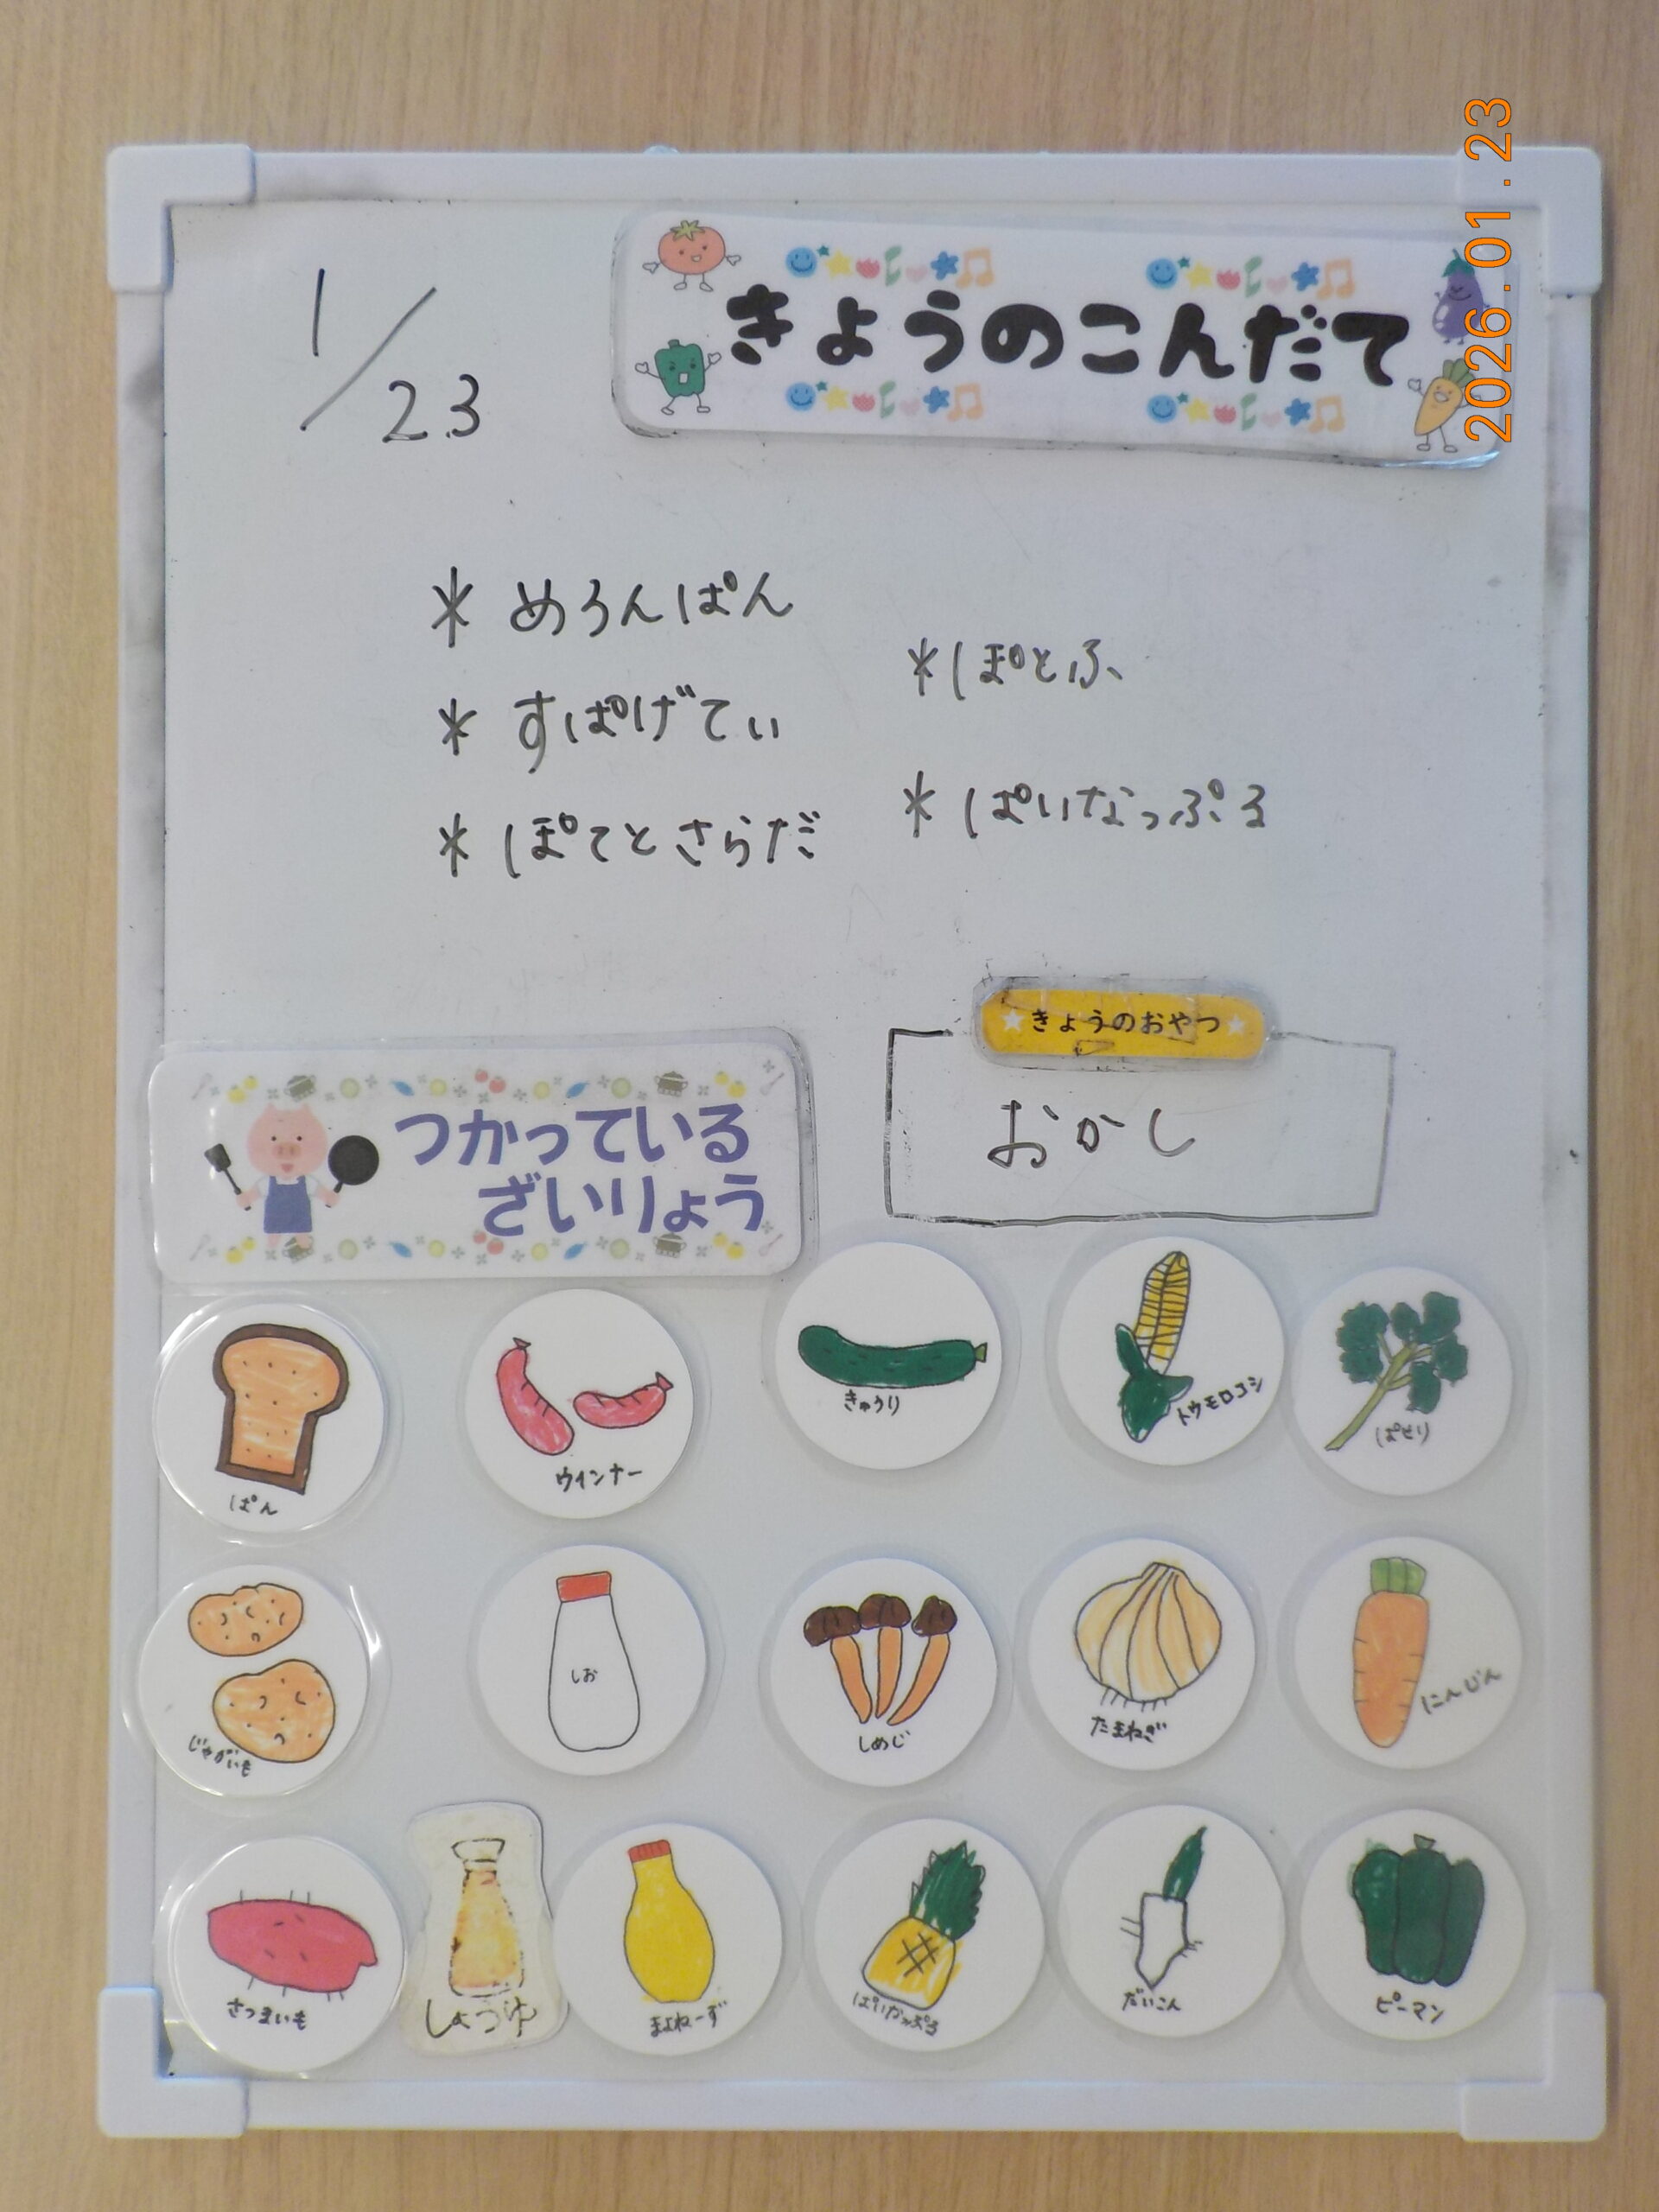 2026.01.23
1/23
きょうのこんだて
* めろんぱん
* すぱげてぃ
* ぽてとさらだ
* ぽとふ
* ぱいなっぷる
きょうのおやつ
おかし
つかっている
ざいりょう
ぱん
ウインナー
きゅうり
トウモロコシ
ぱせり
じゃがいも
しお
しめじ
たまねぎ
にんじん
さつまいも
しょうゆ
まよねーず
ぱいなっぷる
だいこん
ピーマン